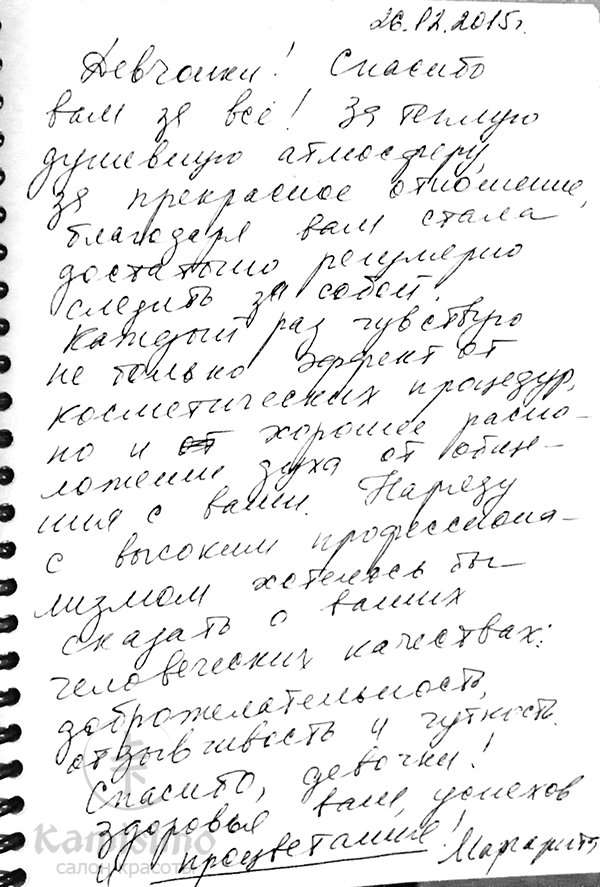 26.12.2015г.
Девчонки! Спасибо
вам за всё! За теплую
душевную атмосферу,
за прекрасное отношение,
благодаря вам стала
достаточно регулярно
следить за собой.
Каждый раз чувствую
не только эффект от
косметических процедур,
но и от хорошее распо-
ложение духа от обще-
ния с вами. Наряду
с высоким профессиона-
лизмом хотелось бы
сказать о ваших
человеческих качествах:
доброжелательность,
отзывчивость и чуткость.
Спасибо, девочки!
Здоровья вам, успехов
и процветание! Маргарита
Kamisimo
салон красоты